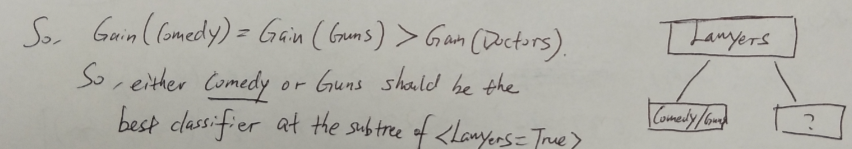 So, Gain(Comedy) = Gain(Guns) > Gain(Doctors).
So, either Comedy or Guns should be the
best classifier at the subtree of <Lawyers=True>
Lawyers
Comedy/Guns
?